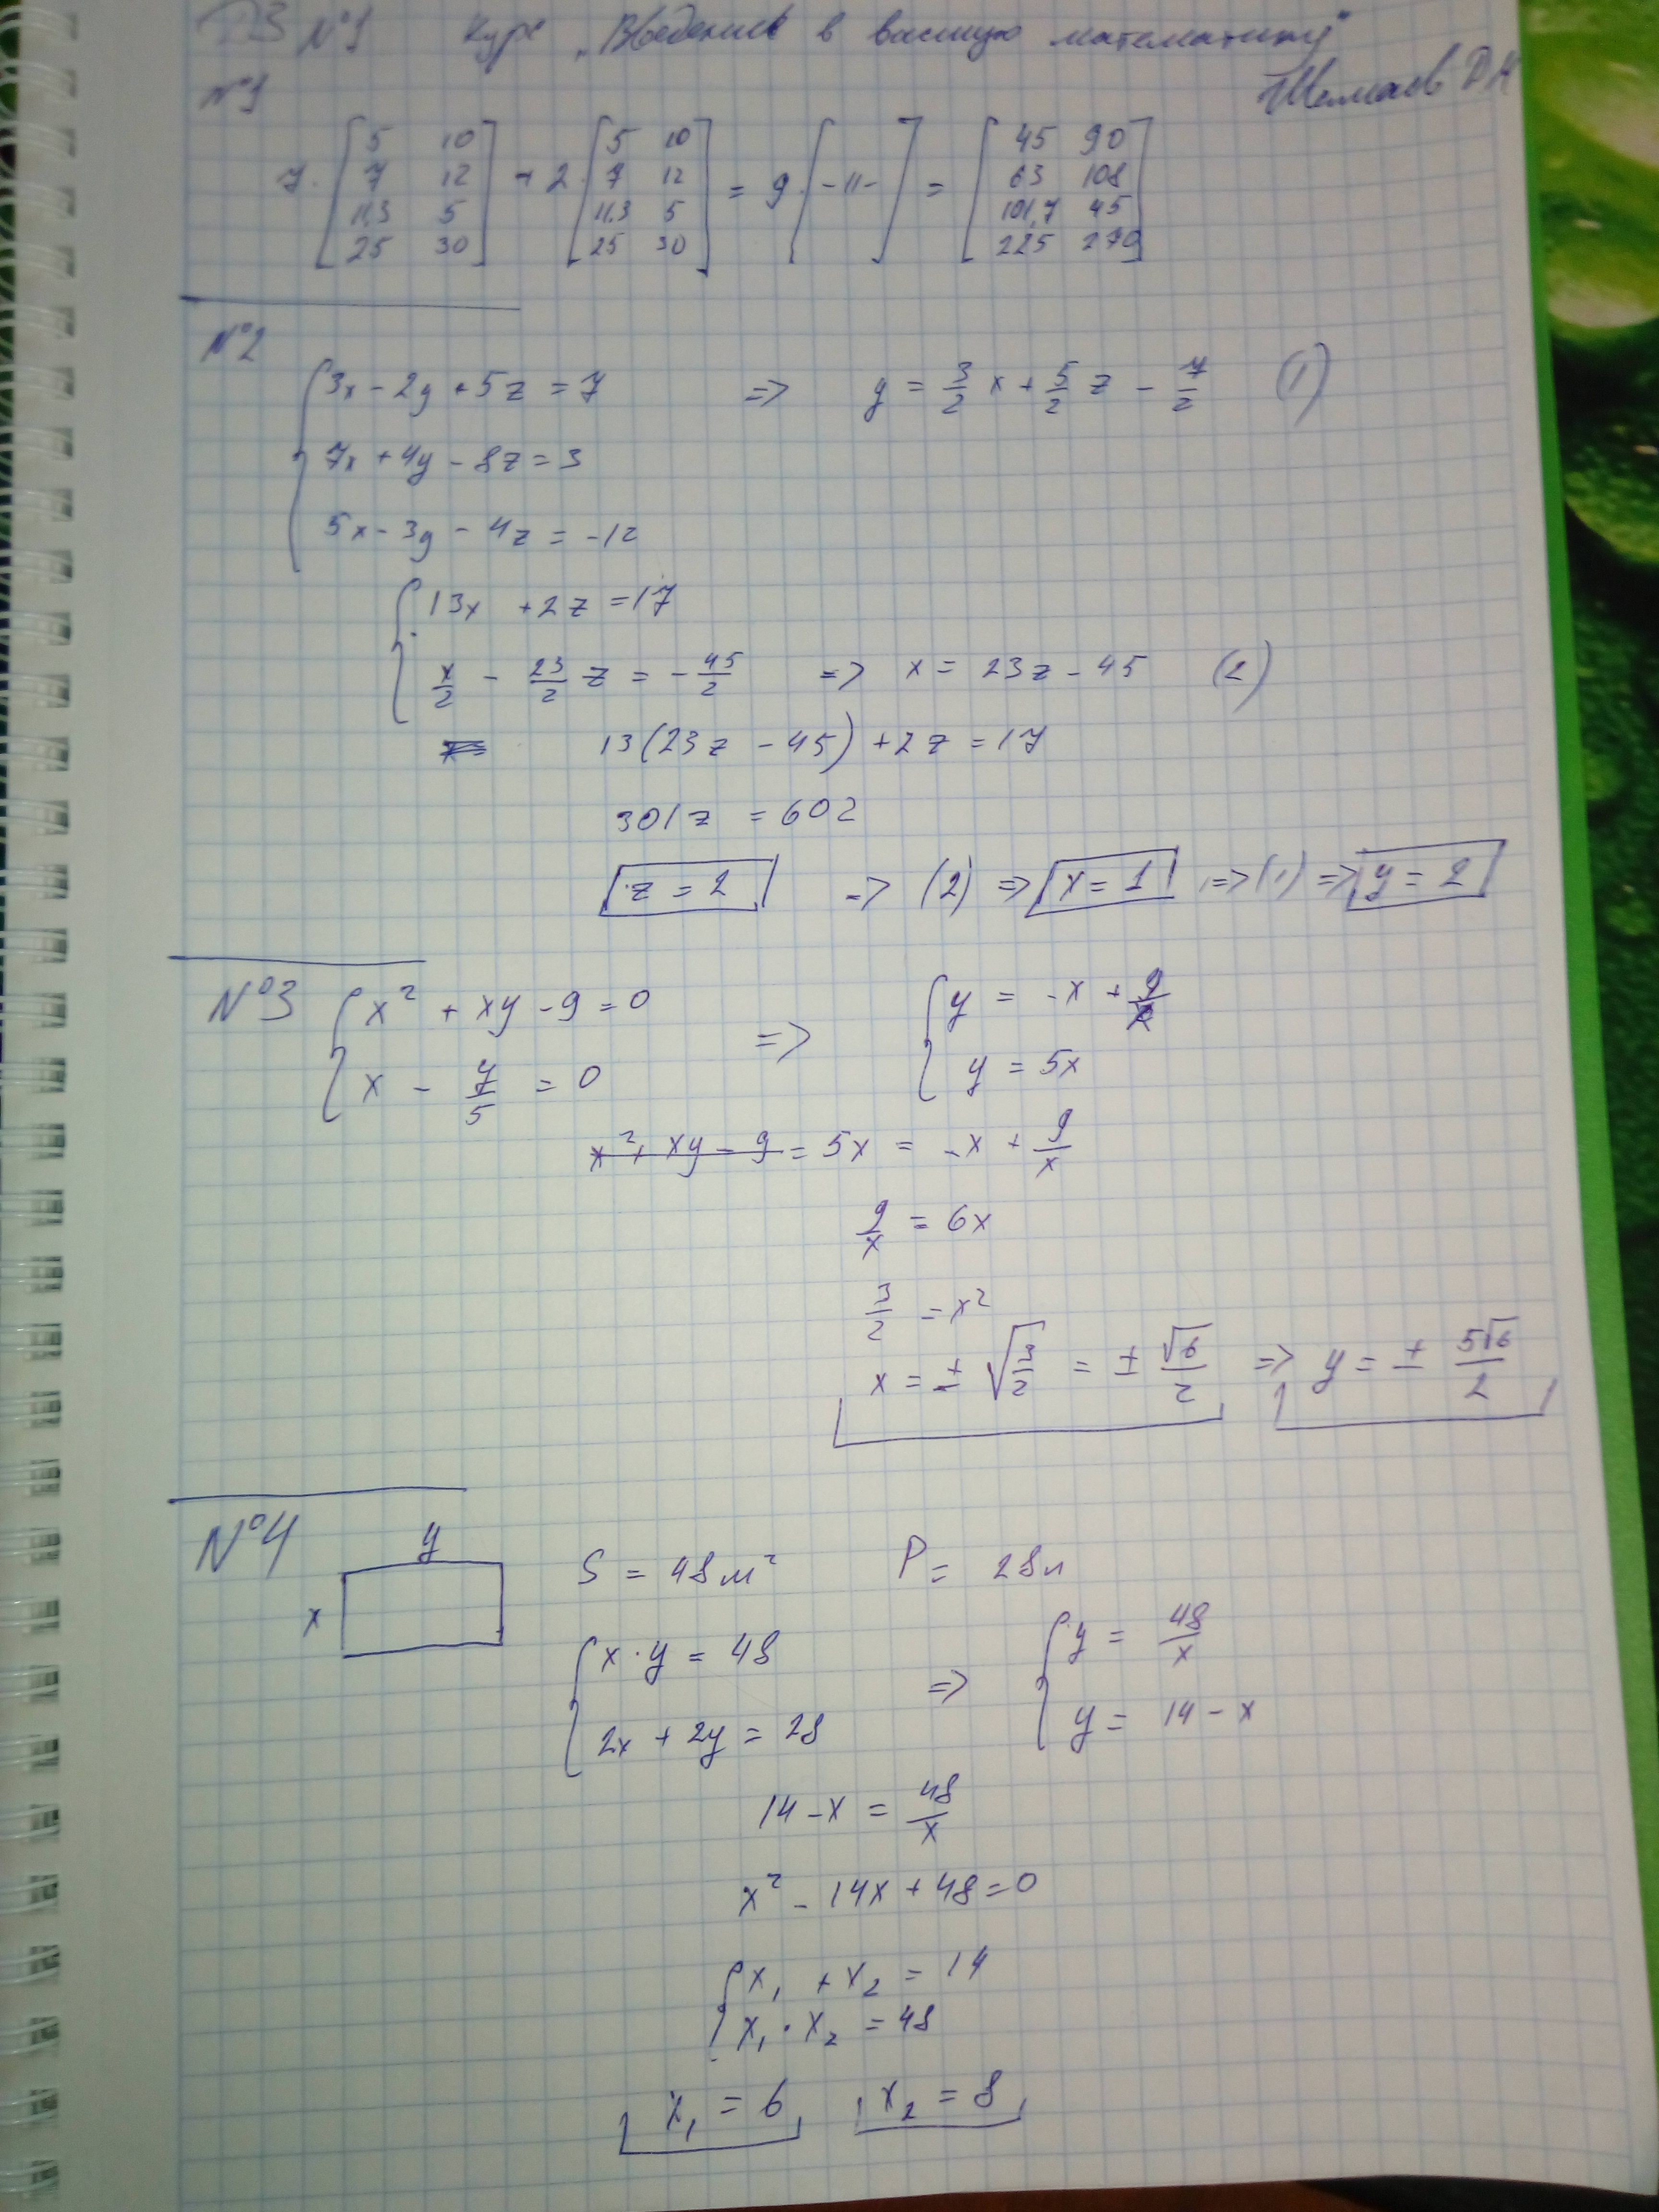 ДЗ №1 Курс „Введение в высшую математику"
Шелаев ДА
№1
7·[5 10; 7 12; 11,3 5; 25 30] + 2·[5 10; 7 12; 11,3 5; 25 30] = 9·[-11-] = [45 90; 63 108; 101,7 45; 225 270]
№2
{3x - 2y + 5z = 7 => y = 3/2 x + 5/2 z - 7/2 (1)
7x + 4y - 8z = 3
5x - 3y - 4z = -12
{13x + 2z = 17
x/2 - 23/2 z = - 45/2 => x = 23z - 45 (2)
13(23z - 45) + 2z = 17
301z = 602
z = 2 => (2) => x = 1 => (1) => y = 2
№3 {x² + xy - 9 = 0 => {y = -x + 9/x
x - y/5 = 0 y = 5x
x² + xy - 9 = 5x = -x + 9/x
9/x = 6x
3/2 = x²
x = ± √(3/2) = ± √6/2 => y = ± 5√6/2
№4 y
x S = 48м² P = 28м
{x·y = 48 => {y = 48/x
2x + 2y = 28 y = 14 - x
14 - x = 48/x
x² - 14x + 48 = 0
{x₁ + x₂ = 14
x₁ · x₂ = 48
x₁ = 6 x₂ = 8